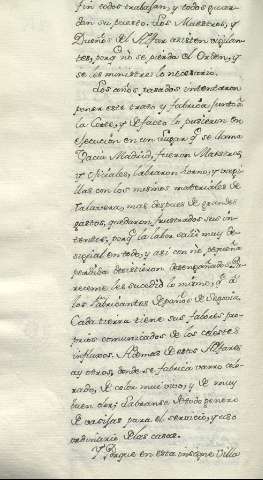 fin todos trabajan, y todos guar-
dan su puesto. Los Maestros, y
Dueños del Alfar asisten vigilan-
tes, porq.e no se pierda el Orden, y
se les ministre lo necesario.
Los años pasados intentaron
poner este trato y fabrica junto â
la Corte, y de facto lo pusieron en
ejecución en un Lugar q.e se llama
Vacia Madrid, fueron Maestros,
y oficiales, labraron horno, y
con los mismos materiales de
Talavera, mas despues de grandes
gastos, quedaron frustrados sus in-
tentos, porq.e la labor salió muy de-
sigual en todo, y asi con no pequeña
perdida desistieron desengañados. Pa-
receme les sucedió lo mismo, q.e â
los fabricantes de paños de Segovia.
Cada tierra tiene sus fabores pro-
prios comunicados de los celestes
influxos. Ademas de estos Alfares
ay otros, donde se fabrica varro
de color mui vivo, y de muy
buen olor; labranse de todo genero
de vasijas para el servicio, y uso
ordinario de las casas.
Y Porque en esta insigne Villa